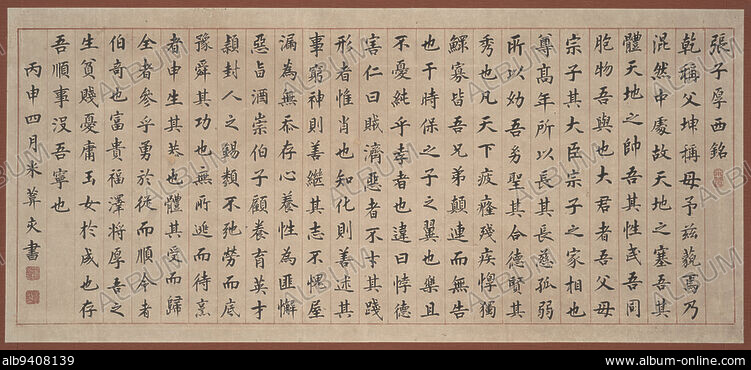 張子厚西銘
乾稱父坤稱母予茲藐焉乃
混然中處故天地之塞吾其
體天地之帥吾其性民吾同
胞物吾與也大君者吾父母
宗子其大臣宗子之家相也
尊高年所以長其長慈孤弱
所以幼吾幼聖其合德賢其
秀也凡天下疲癃殘疾惸獨
鰥寡皆吾兄弟顛連而無告
也于時保之子之翼也樂且
不憂純乎孝者也違曰悖德
害仁曰賊濟惡者不才其踐
形者惟肖也知化則善述其
事窮神則善繼其志不愧屋
漏為無忝存心養性為匪懈
惡旨酒崇伯子顧養育英才
穎封人之錫類不弛勞而底
豫舜其功也無所逃而待烹
者申生其恭也體其受而歸
全者參乎勇於從而順令者
伯奇也富貴福澤將厚吾之
生貧賤憂庸玉女於成也存
吾順事沒吾寧也
丙申四月書
alb9408139
www.album-online.com